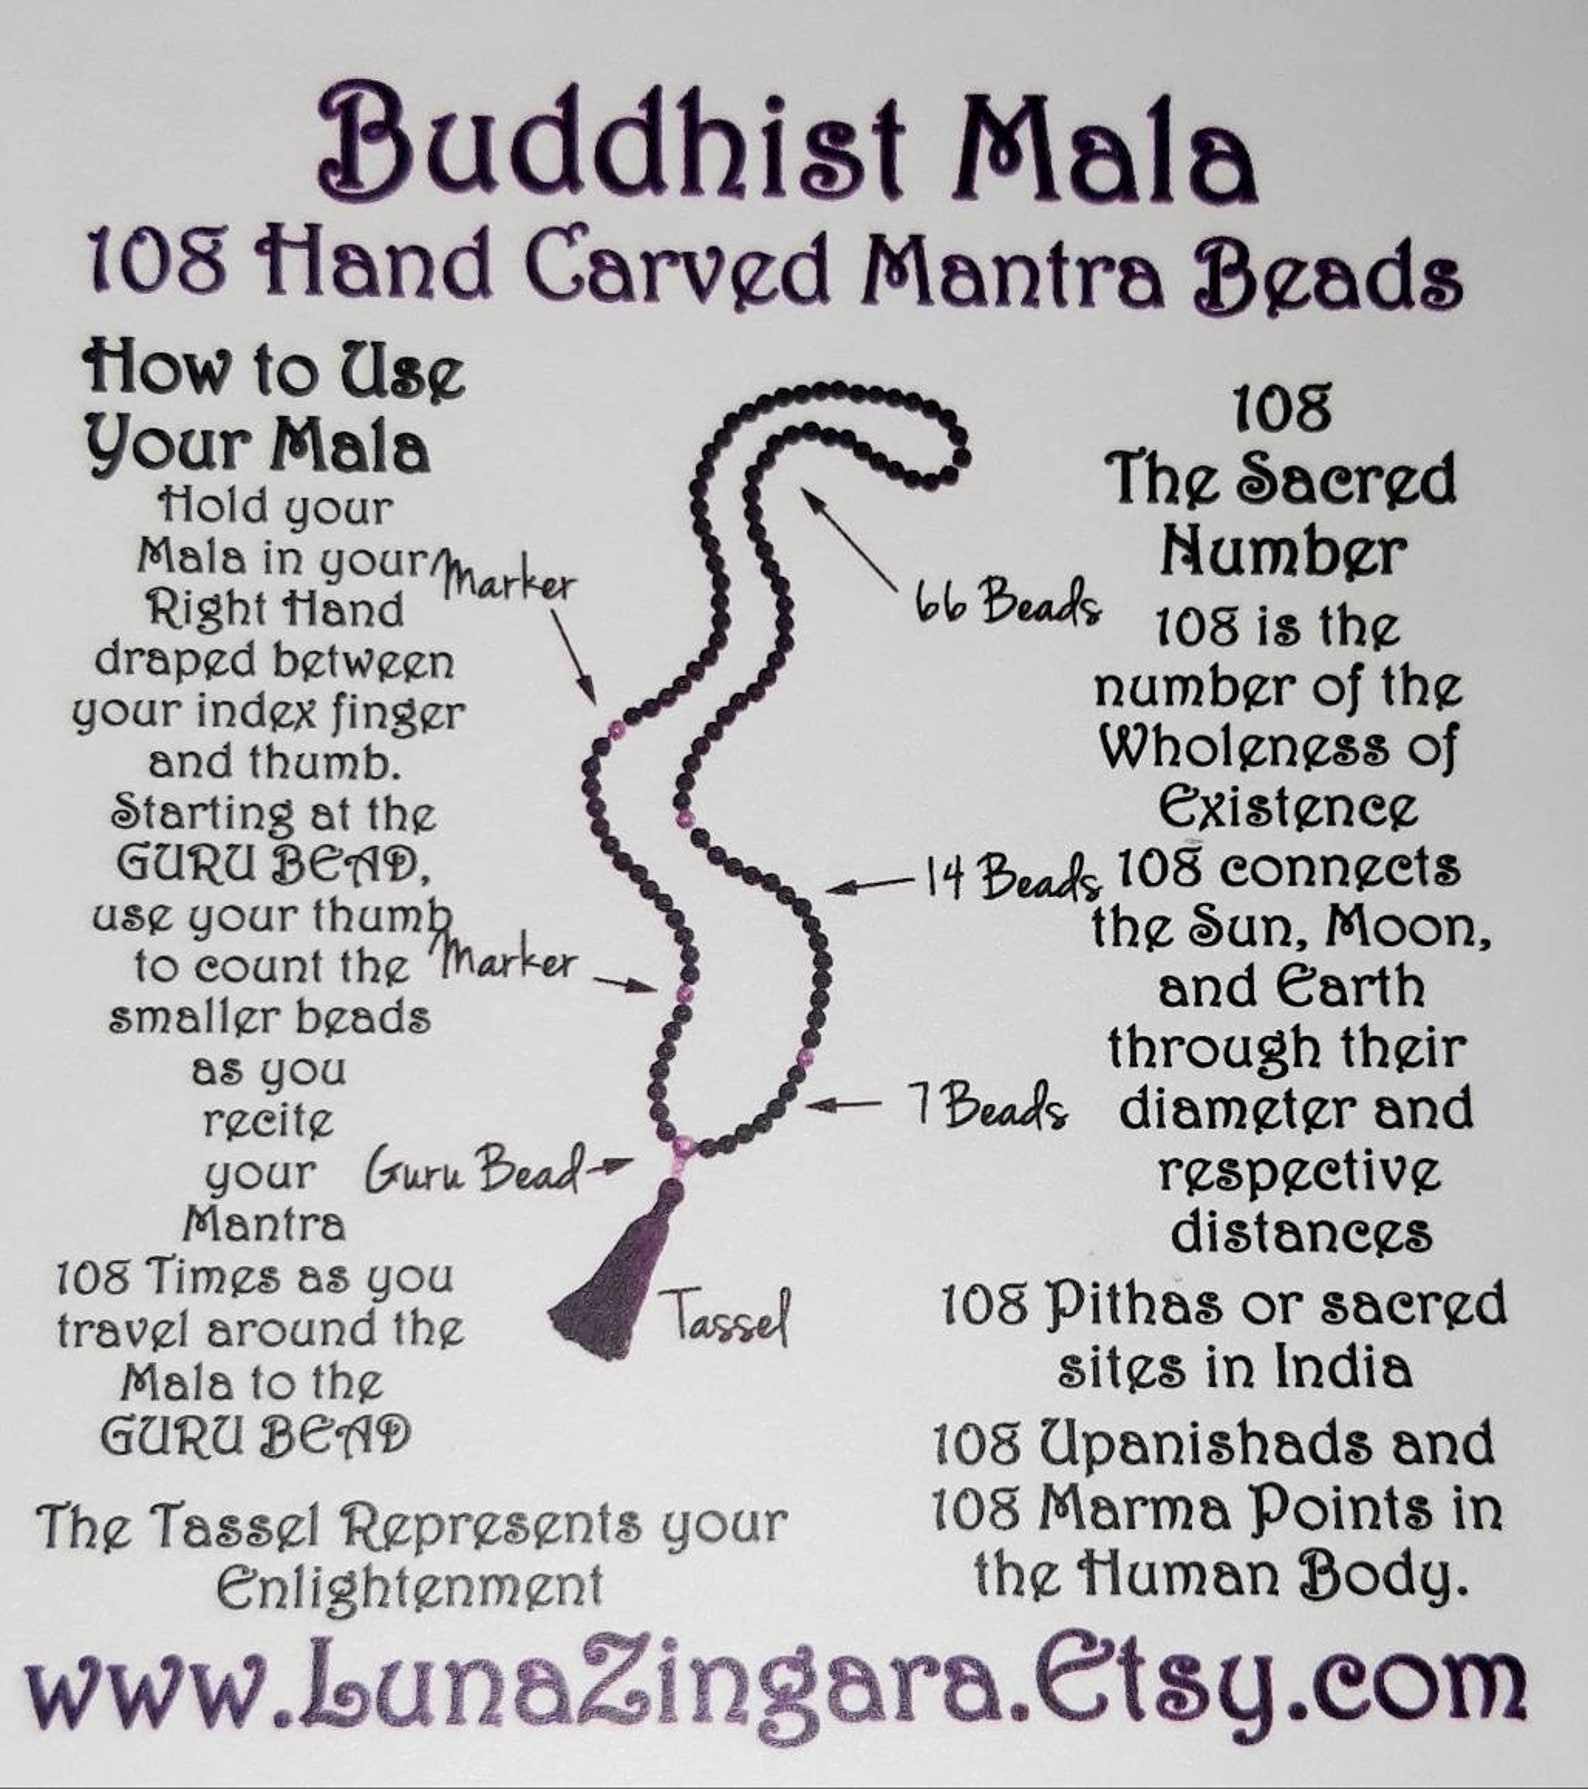 Buddhist Mala
108 Hand Carved Mantra Beads
How to Use
Your Mala
Hold your
Mala in your
Right Hand
draped between
your index finger
and thumb.
Starting at the
GURU BEAD,
use your thumb
to count the
smaller beads
as you
recite
your
Mantra
108 Times as you
travel around the
Mala to the
GURU BEAD
The Tassel Represents your
Enlightenment
Marker
66 Beads
14 Beads
Marker
7 Beads
Guru Bead
Tassel
108
The Sacred
Number
108 is the
number of the
Wholeness of
Existence
108 connects
the Sun, Moon,
and Earth
through their
diameter and
respective
distances
108 Pithas or sacred
sites in India
108 Upanishads and
108 Marma Points in
the Human Body.
www.LunaZingara.Etsy.com